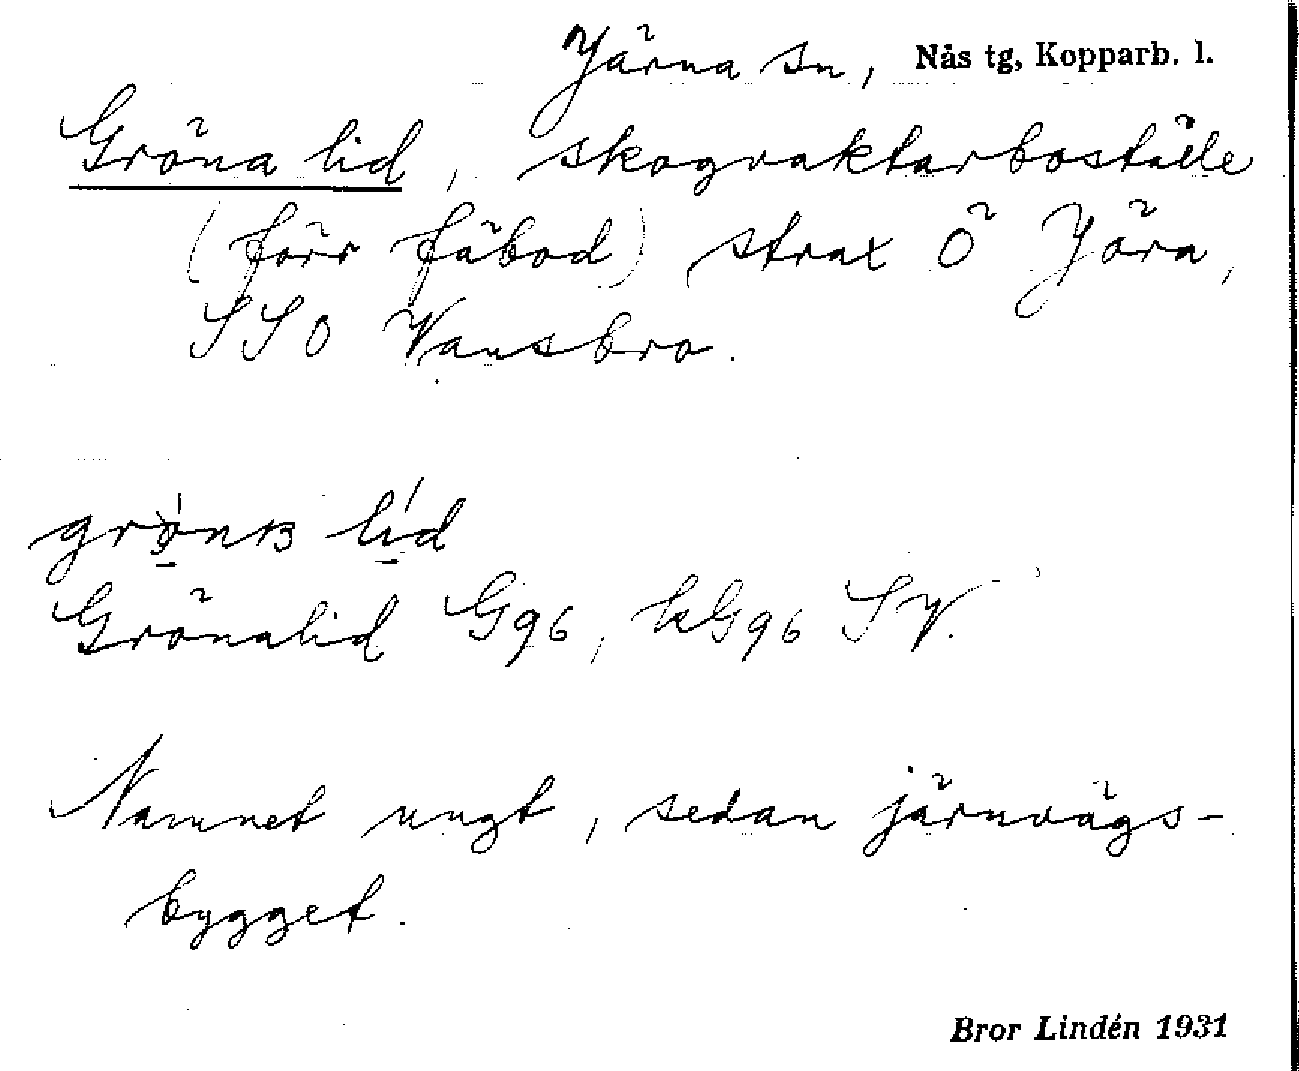 Järna sn, Nås tg, Kopparb. l.
Gröna lid, skogvaktarboställe
(förr fäbod) strax Ö Jöra,
SSO Vansbro.
lid
Grönalid G96, kG96 SV.
Namnet ungt, sedan järnvägs-
bygget.
Bror Lindén 1931